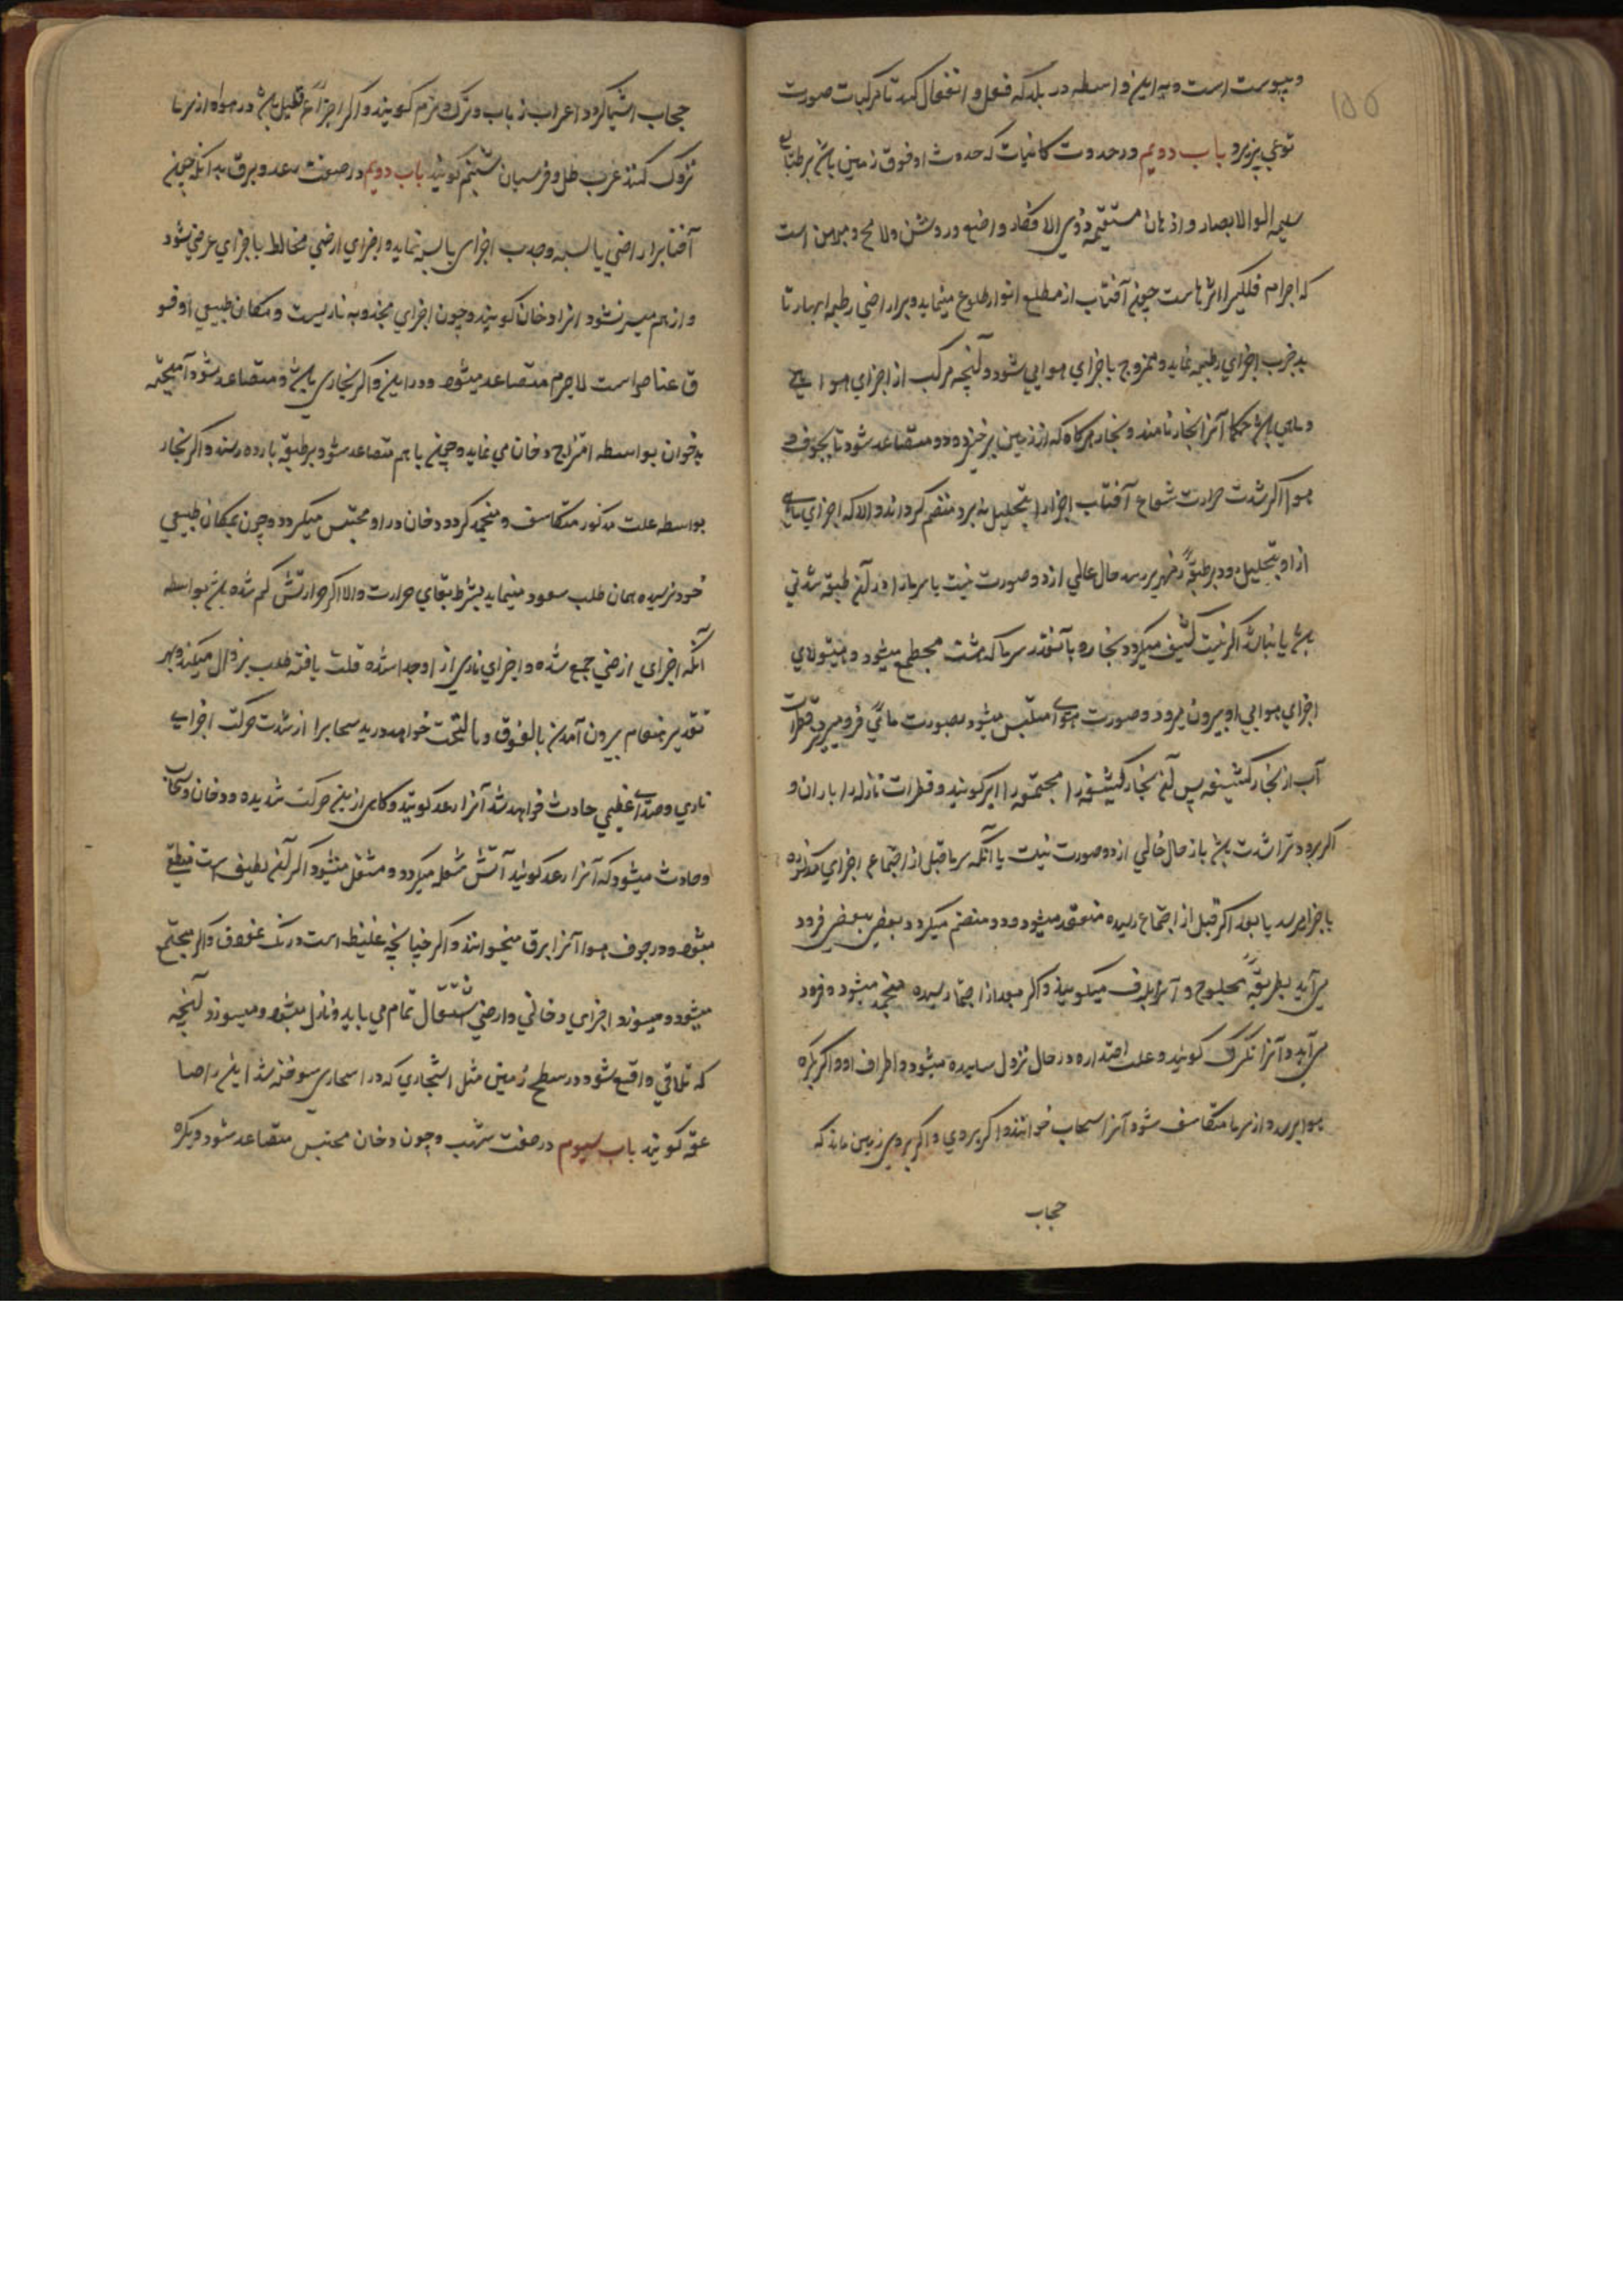 ۱۵۵
و یبوست است و به این واسطه در یکدیگر فعل و انفعال کند تا مرکبات صورت
نوعی پذیرد باب دویم در حدوث کائنات که حدوث او فوق زمین باشد بر طباع
سلیمه اولو الابصار و اذهان مستقیمه ذوی الافکار واضح و روشن و لامح و مبرهن است
که اجرام فلکیرا اثرهاست چون آفتاب از مطلع انوار طلوع مینماید و براراضی رطبه
جذب اجزای رطبه نماید و ممزوج با جزای هوایی شود و آنچه مرکب از اجزای هوائی
و مایی باشد حکما آنرا بخار نامند و بخار هرگاه که از زمین برخیزد و متصاعد شود تا بجوف
هوا اگر شدت حرارت شعاع آفتاب اجزارا بتحلیل نبرد منضم گرداند و الا که اجزای مایی
از او بتحلیل رود بر طبقهٔ زمهریر رسد حال خالی از دو صورت نیست یا سرما را در آن طبقه شدتی
باشد یا نباشد اگر نیست کثیف میگردد بخاره بآنقدر سرما که هست مجتمع میشود و هیولای
اجزای هوایی او بیرون میرود و صورت هوای متلبس میشود بصورت مائی فرو میریزد قطرات
آب از بخار کثیفه پس آن بخار کثیفه را مجتمعه را ابر گویند و قطرات نازله را باران و
اگر برودترا شدت باشد باز حال خالی از دو صورت نیست یا آنکه سرما قبل از اجتماع اجزای مذکوره
با جزا میرسد یا بعد اگر قبل از اجتماع رسیده منعقد میشود و منضم میگردد بعضی ببعضی فرود
می‌آید بطریقهٔ محلوج و آنرا برف میگویند و اگر بعد از اجتماع رسیده منجمد میشود و فرود
می‌آید و آنرا تگرگ گویند و علت استداره در حال نزول ساییده میشود و اطراف او و اگر بکره
هوا برسد و از سرما متکاثف شود آنرا سحاب خوانند و اگر بروی زمین ماند که
حجاب
حجاب اشیا گردد اعراب زباب و ترک و نزم گویند و اگر اجزاء قلیل باشد در هوا و از سرما
نزول کند عرب طل و فرسیان شبنم گویند باب دویم در صفت رعد و برق بدانکه چون
آفتاب براراضی یابسه وجذب اجزای یابسه نماید و اجزای ارضی مخالط با جزای عرضی شود
و از هم میسر نشود انرا دخان گویند و چون اجزای مجذوبه ناریست و مکان طبیعی او فو
ق عناصر است لاجرم متصاعد میشود و در این و اگر بخاری باشد و متصاعد شود آمیخته
بدخوان بواسطه امتزاج دخان می نماید و چون با هم متصاعد شود بر طبقه بارده رسند و اگر بخار
بواسطه علت مذکور متکاسف و منجمد گردد و دخان در او محتبس میگردد و چون بمکان طبیعی
خود نرسیده همان طلب سعود مینماید بشرط بقای حرارت و الا اگر حرارتش کم شده باشد بواسطه
آنکه اجزای ارضی جمع شده و اجزای ناری از او جدا شده قلت یافته طلب نزول میکند و بهر
تقدیر بهنگام بیرون آمدن بالفوق و بالتحت خواهد درید سحابرا از شدت حرکت اجزای
ناری و صدای عظیمی حادث خواهد شد آنرا رعد گویند و گاهی از بین حرکت شدیده و دخان و سحاب
و حادث میشود که آنرا رعد گویند آتش شعله میگردد و مشتعل میشود اگر آن لطیف است منطفی
میشود و در جوف هوا آنرا برق میخوانند و اگر چنانچه غلیظ است درنگ و اگر مجتمع
میشود و میسوزد اجزای دخانی و ارضی اشتعال تمام می یابد و نازل میشود و میسوزد آنچه
که تلاقی واقع شود در سطح زمین مثل اشجاری که در اسحاری سوخته شد این را صا
عقه گویند باب سیوم در صفت شهب و چون دخان محتبس متصاعد شود و بکره